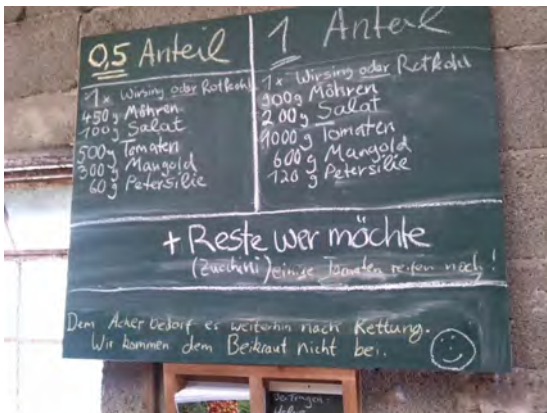 0,5 Anteil
1 x Wirsing oder Rotkohl
450 g Möhren
100 g Salat
500 g Tomaten
300 g Mangold
60 g Petersilie
1 Anteil
1 x Wirsing oder Rotkohl
900 g Möhren
200 g Salat
1000 g Tomaten
600 g Mangold
120 g Petersilie
+ Reste wer möchte
(Zucchini) einige Tomaten reifen noch!
Dem Acker bedarf es weiterhin nach Rettung.
Wir kommen dem Beikraut nicht bei.